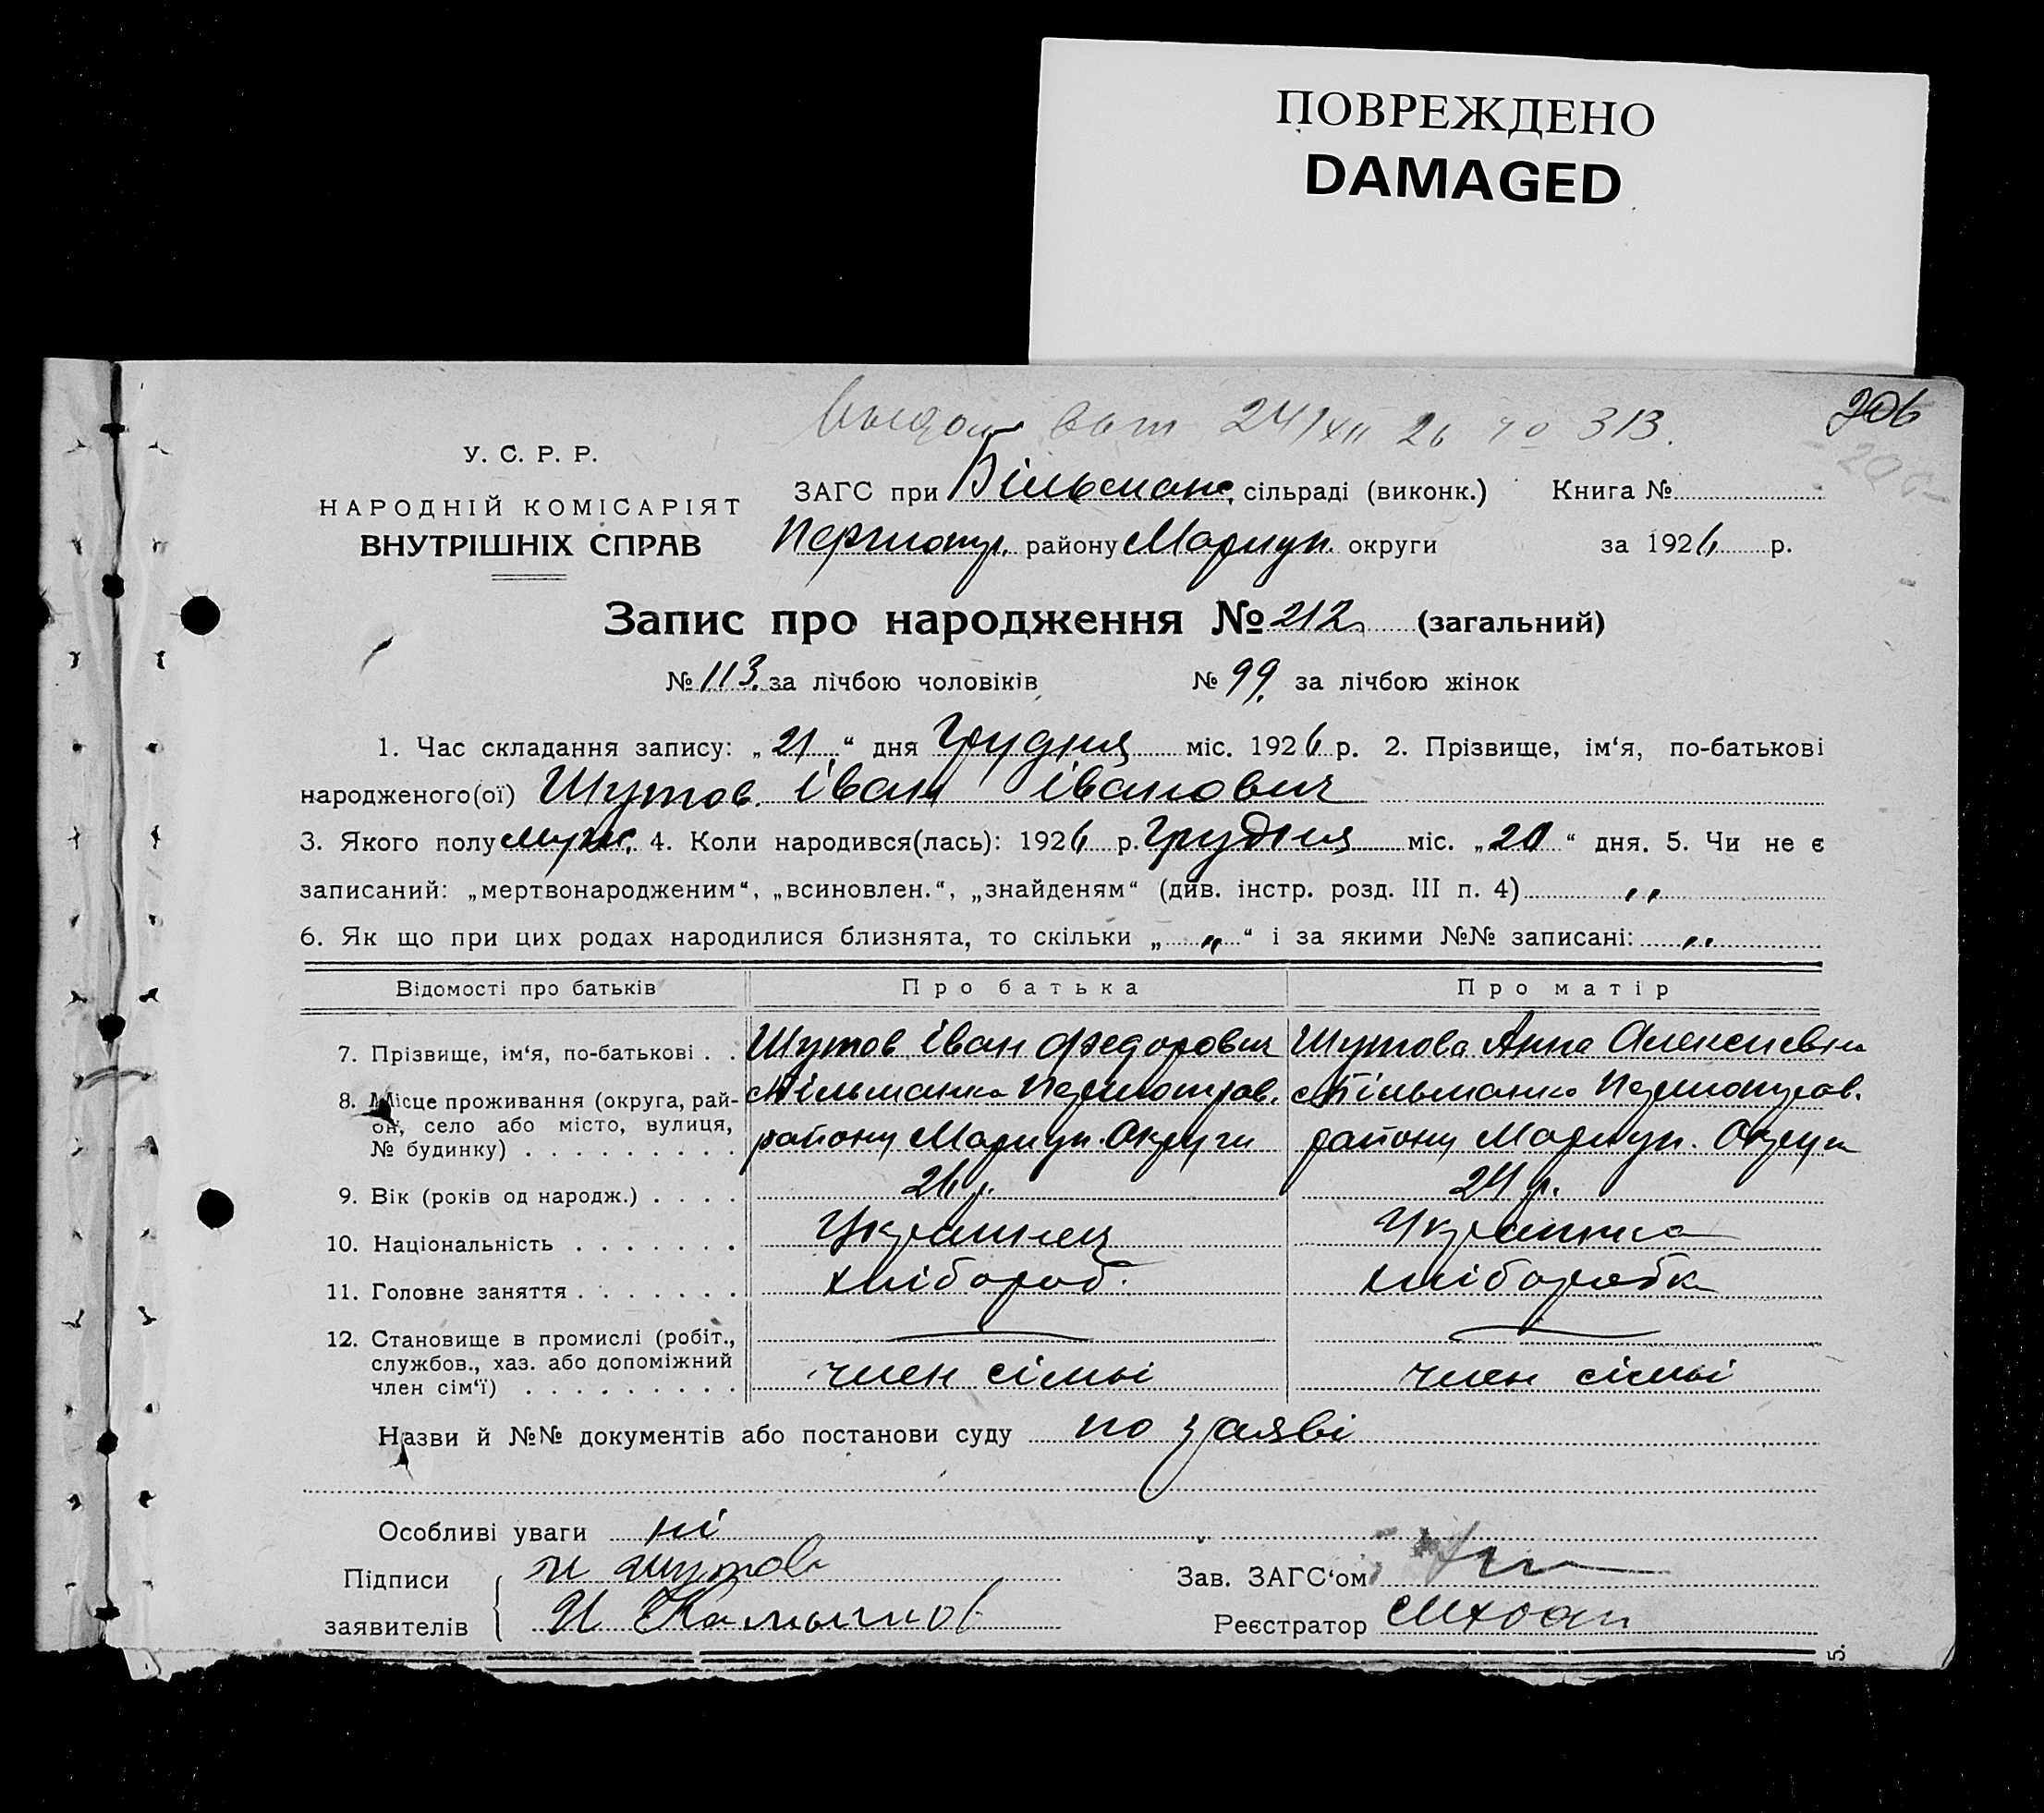 ПОВРЕЖДЕНО
DAMAGED
206
24/XII 26 313.
У. С. Р. Р.
НАРОДНІЙ КОМІСАРІЯТ
ВНУТРІШНІХ СПРАВ
ЗАГС при Більманс. сільраді (виконк.) Книга №
району Мариуп. округи за 1926 р.
Запис про народження № 212 (загальний)
№ 113. за лічбою чоловіків № 99. за лічбою жінок
1. Час складання запису: „21“ дня Грудня міс. 1926 р. 2. Прізвище, ім‘я, по-батькові
народженого(ої) Шутов Іван Іванович
3. Якого полу муж. 4. Коли народився(лась): 1926 р. Грудня міс. „20“ дня. 5. Чи не є
записаний: „мертвонародженим“, „всиновлен.“, „знайденям“ (див. інстр. розд. III п. 4) „
6. Як що при цих родах народилися близнята, то скільки „ „ “ і за якими №№ записані: „
Відомості про батьків Про батька Про матір
7. Прізвище, ім‘я, по-батькові . . Шутов Іван Федорович Шутова Анна Алексиевна
8. Місце проживання (округа, рай-
он, село або місто, вулиця,
№ будинку) . . . . . . . . .
с Більманка с Більманка
району Мариуп. Округи району Мариуп. Округи
9. Вік (років од народж.) . . . . 26 р. 24 р.
10. Національність . . . . . . . Украинец Украинка
11. Головне заняття . . . . . . . хлібороб. хлиборобка
12. Становище в промислі (робіт.,
службов., хаз. або допоміжний
член сім‘ї) . . . . . . . . . член сімьі член сімьі
Назви й №№ документів або постанови суду по заяві
Особливі уваги ні
Підписи Шутов Зав. ЗАГС‘ом
заявителів И Реєстратор
5.